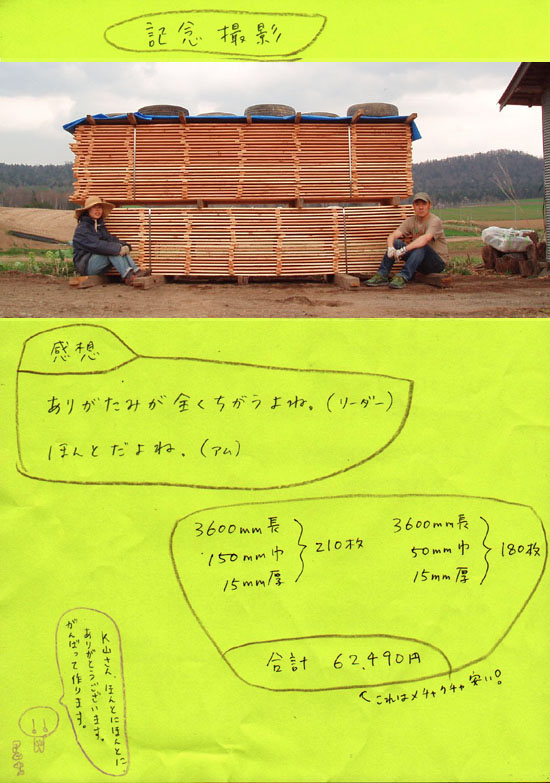 記念撮影
感想
ありがたみが全くちがうよね。(リーダー)
ほんとだよね。(アム)
3600mm長
150mm巾
15mm厚
210枚
3600mm長
50mm巾
15mm厚
180枚
合計 62,490円
これはメチャクチャ安い!
K山さん、ほんとにほんとに
ありがとうございます。
がんばって作ります。